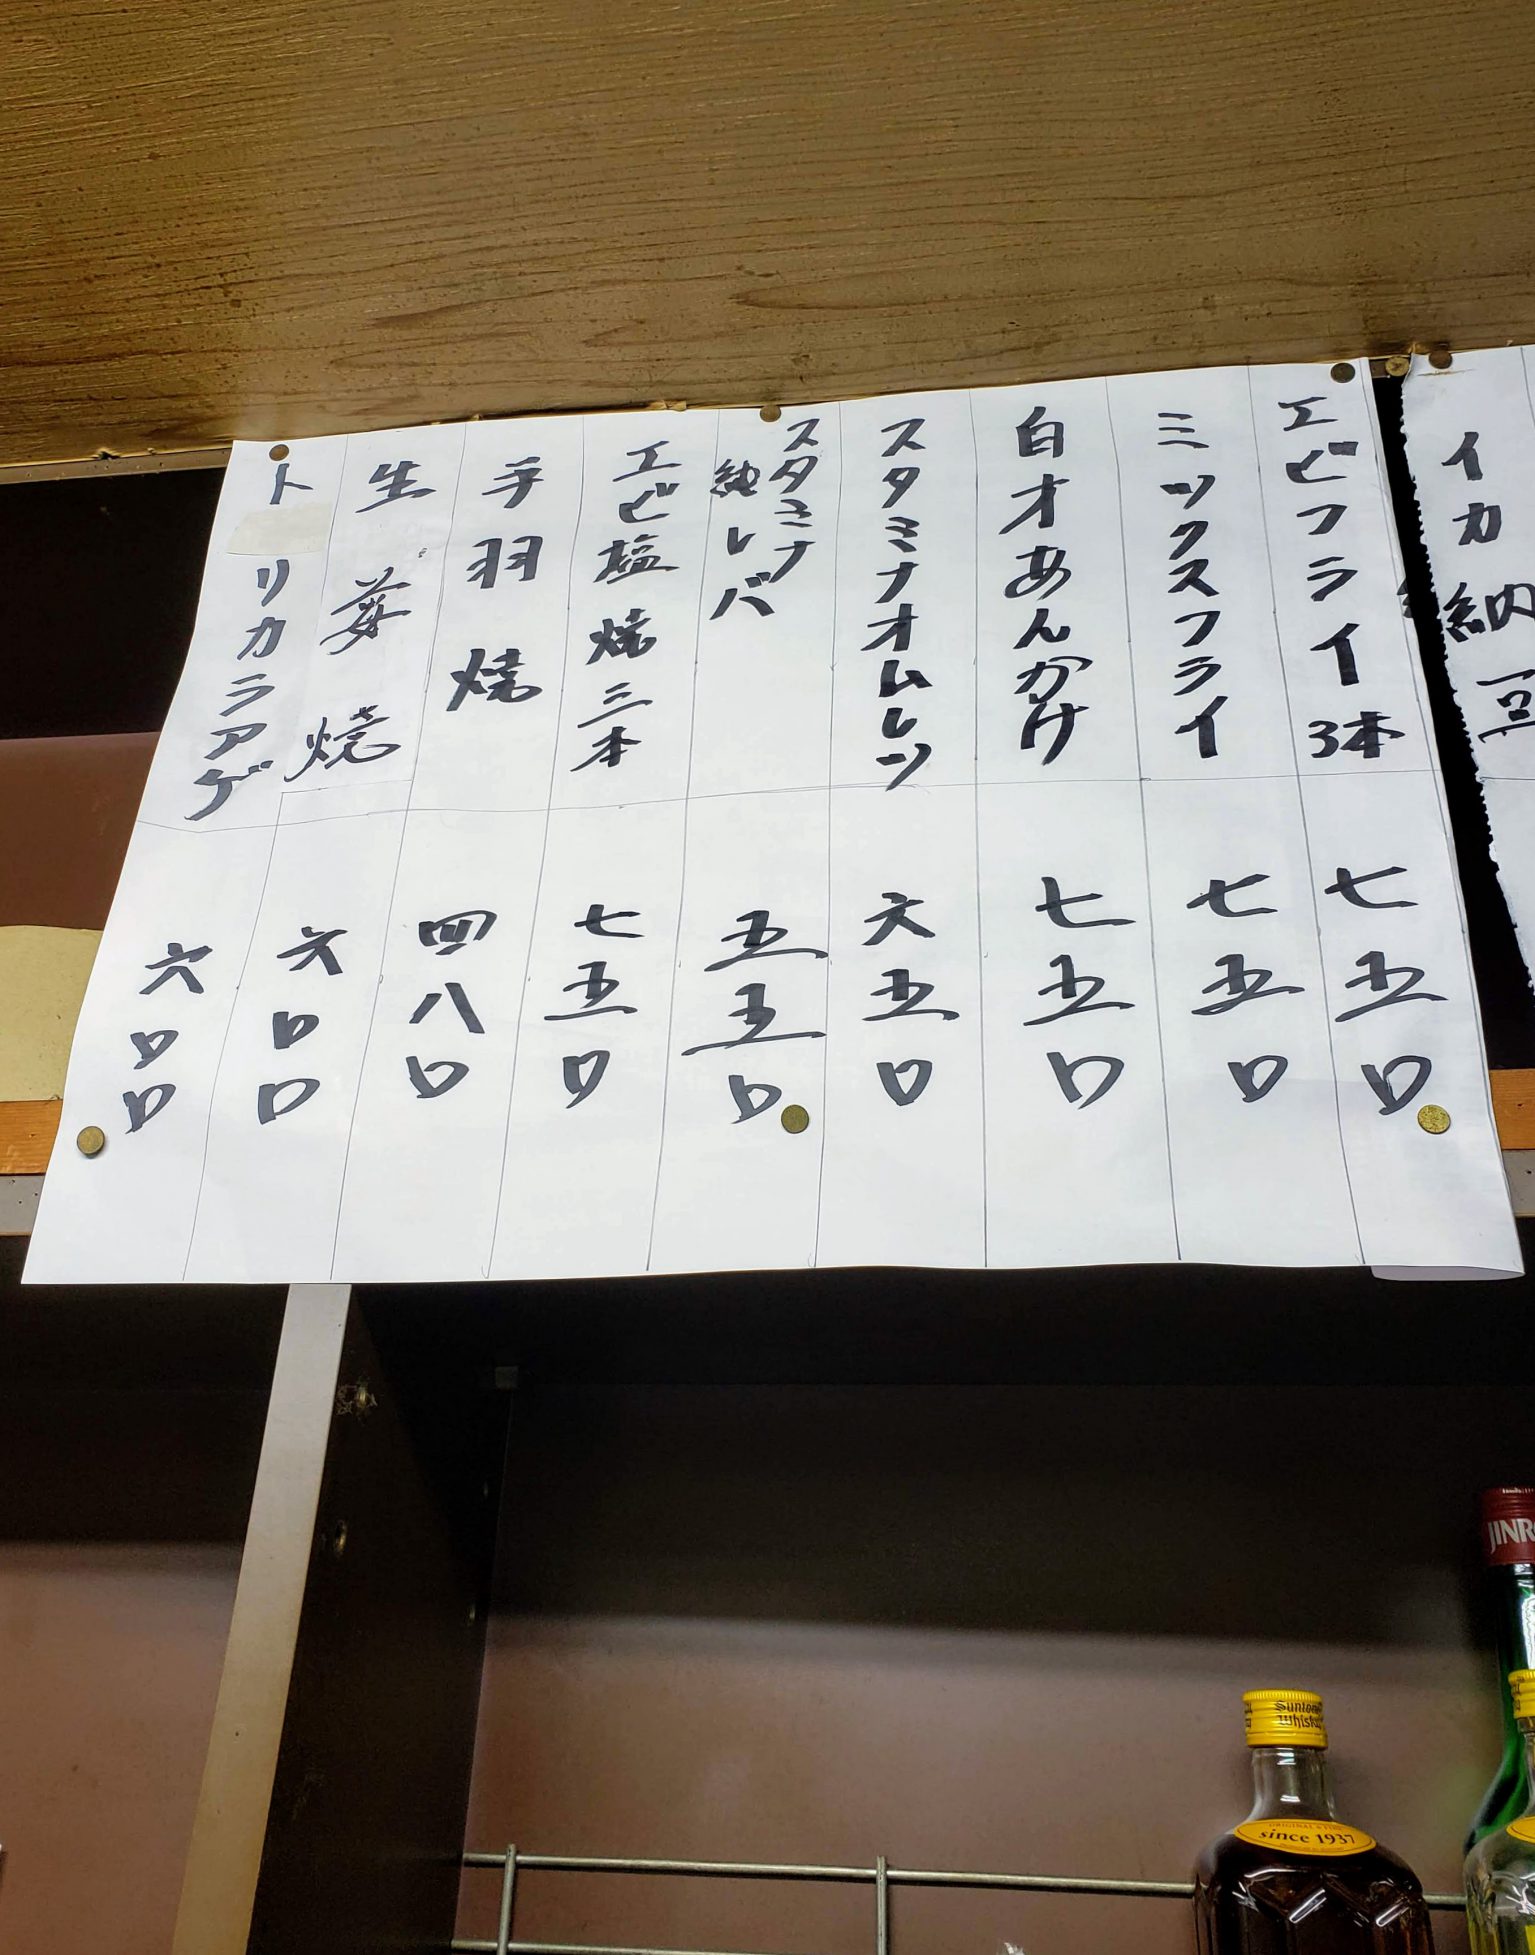 イカ納豆
エビフライ3本
七五〇
ミックスフライ
七五〇
白才あんかけ
七五〇
スタミナオムレツ
六五〇
スタミナ
純レバ
五五〇
エビ塩焼三本
七五〇
手羽焼
四八〇
生姜焼
六〇〇
トリカラアゲ
六〇〇
JINR
Suntory
Whisky
since 1937